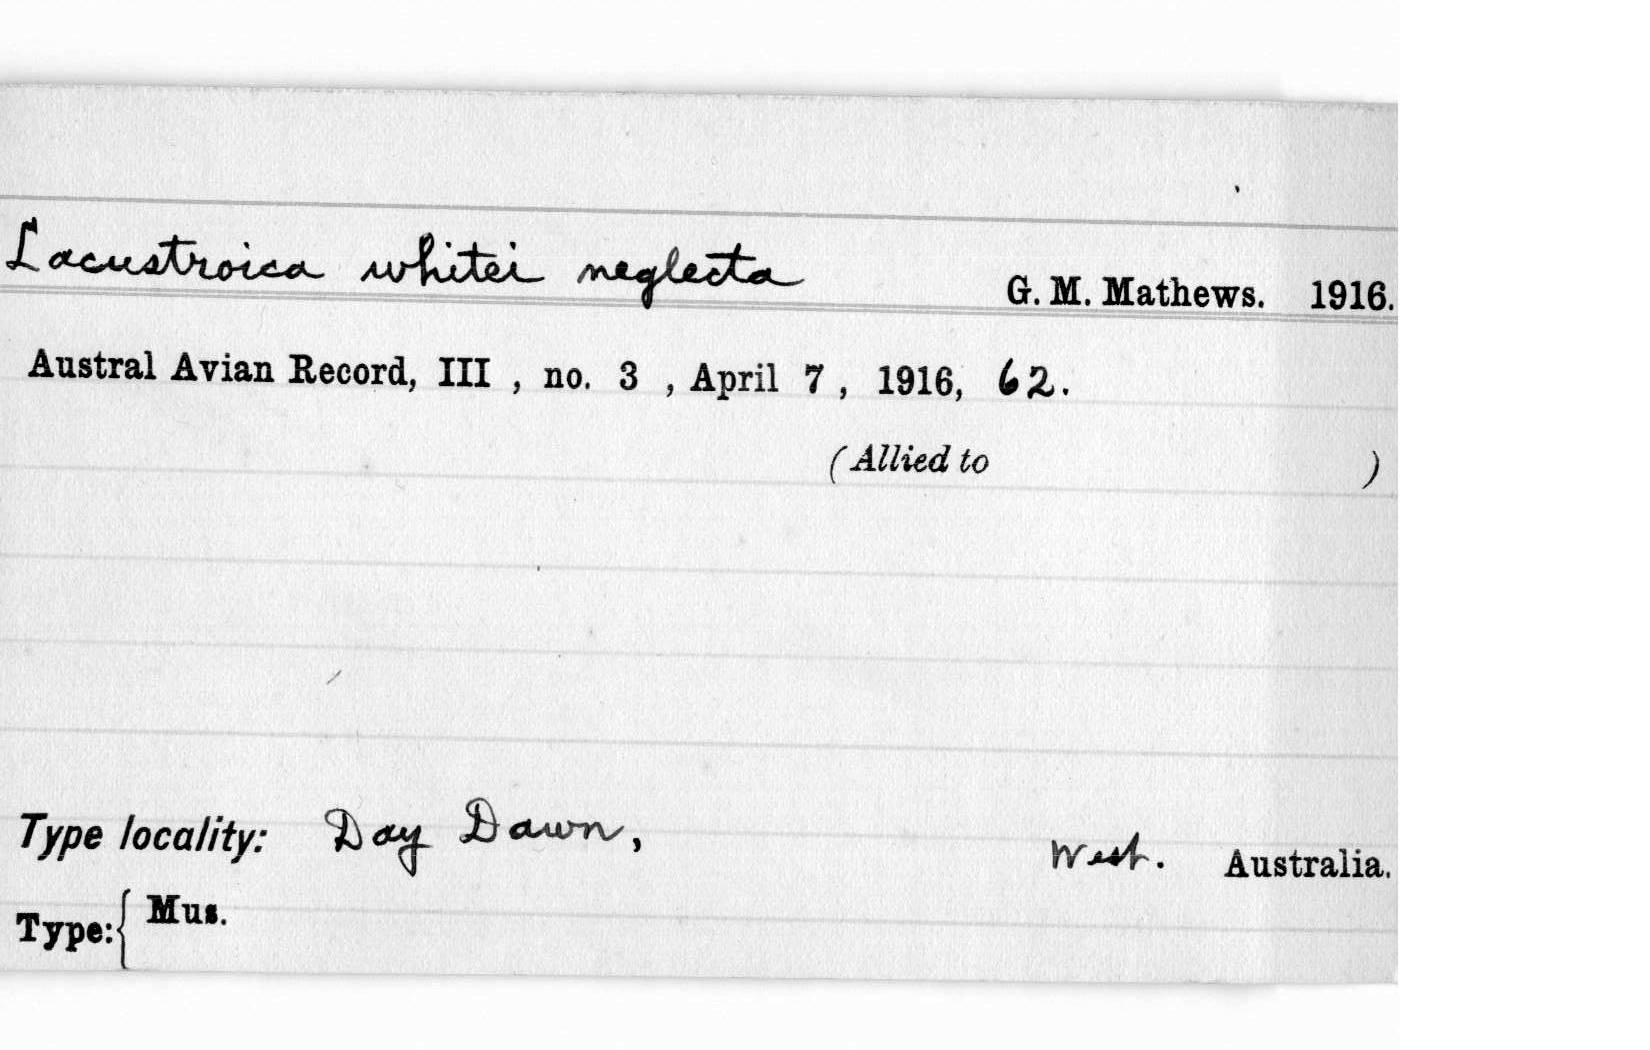 Lacustroica whitei neglecta G. M. Mathews. 1916.
Austral Avian Record, III , no. 3 , April 7 , 1916, 62.
(Allied to )
Type locality: Day Dawn, West. Australia.
Type: { Mus.